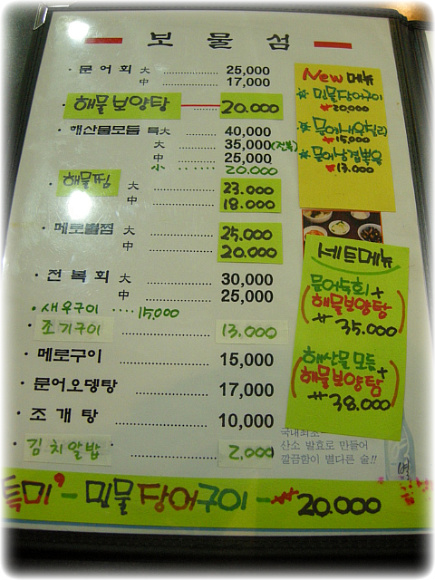 보물섬
· 문어회 大 25,000
中 17,000
· 해물보양탕 20.000
· 해산물모듬 특大 40,000
大 35,000 (전복)
中 25,000
小 20.000
· 해물찜 大 23.000
中 18.000
· 메로찜 大 25,000
中 20,000
· 전복회 大 30,000
中 25,000
· 새우구이 15,000
· 조기구이 13.000
· 메로구이 15,000
· 문어오뎅탕 17,000
· 조개탕 10,000
· 김치알밥 2,000
New 메뉴
* 민물장어구이
₩20.000
* 문어새우튀김
₩15,000
₩13.000
세트메뉴
문어숙회+
해물보양탕
₩35.000
해산물모듬+
해물보양탕
₩38.000
국내최소
산소 발효로 만들어
깔끔함이 별다른 술!!
특미 - 민물장어구이 - ₩20.000